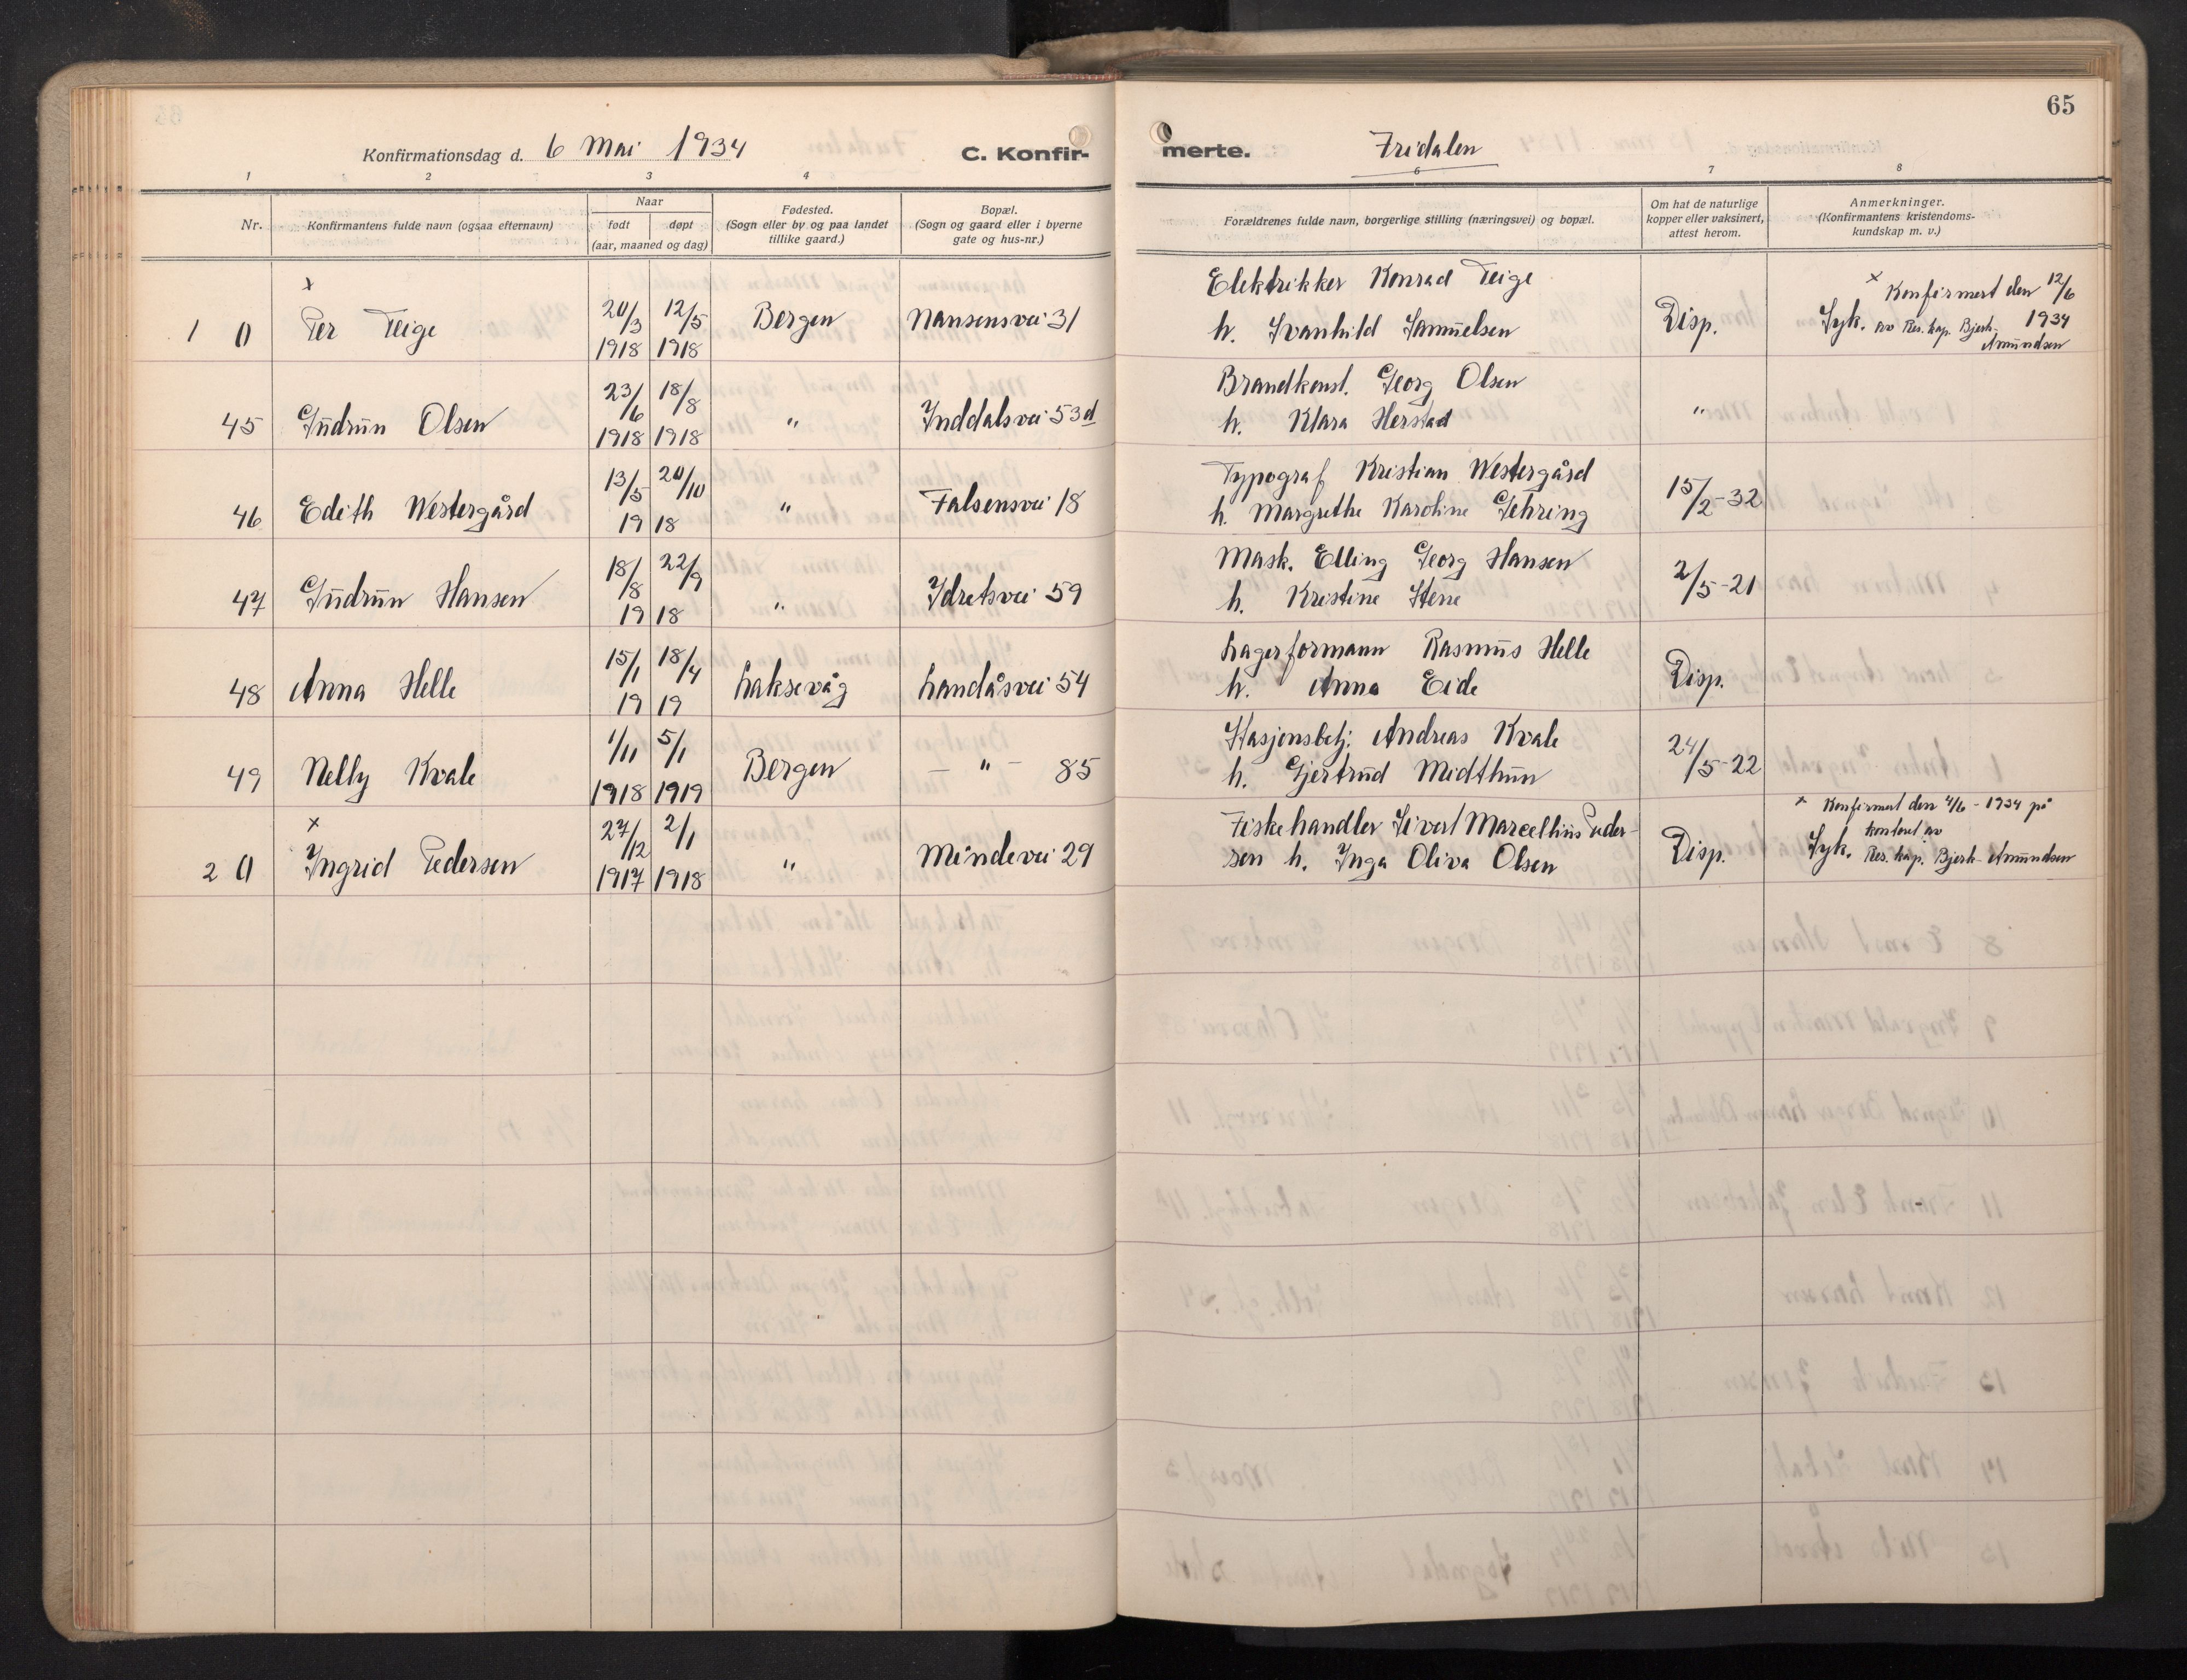 65
Konfirmationsdag d. 6 Mai 1934
C. Konfir-
merte. Fridalen
1 2 3 4 6 7 8
Nr.
Konfirmantens fulde navn (ogsaa efternavn)
Naar
født døpt
(aar, maaned og dag)
Fødested.
(Sogn eller by og paa landet
tillike gaard.)
Bopæl.
(Sogn og gaard eller i byerne
gate og hus-nr.)
Forældrenes fulde navn, borgerlige stilling (næringsvei) og bopæl.
Om hat de naturlige
kopper eller vaksinert,
attest herom.
Anmerkninger.
(Konfirmantens kristendoms-
kundskap m. v.)
x
1 0 Per Teige 20/3 1918 12/5 1918 Bergen Nansensvei 31
Elektrikker Konrad Teige
h. Svanhild Samuelsen
Disp.
x Konfirmert den 12/6
Syk. av Res. kap. Bjerk- 1934
Amundsen
45 Gudrun Olsen 23/6 1918 18/8 1918 " Inddalsvei 53d
Brandkonst. Georg Olsen
h. Klara Herstad
"
46 Edith Westergård 13/5 20/10 1918 " Falsensvei 18
Typograf Kristian Westergård
h. Margrethe Karoline Gehring
15/2-32
47 Gudrun Hansen 18/8 22/9 1918 " Idretsvei 59
Mask. Elling Georg Hansen
h. Kristine Stene
2/5-21
48 Anna Helle 15/1 18/4 1919 Laksevåg Landåsvei 54
Lagerformann Rasmus Helle
h. Anna Eide
Disp.
49 Nelly Kvale 1/11 1918 5/1 1919 Bergen — " — 85
Stasjonsbetj. Andreas Kvale
h. Gjertrud Midthun
24/5-22
x
2 0 Ingrid Pedersen 27/12 1917 2/1 1918 " Mindevei 29
Fiskehandler Sivert Marcellius Peder-
sen h. Inga Oliva Olsen
Disp.
x Konfirmert den 4/6 - 1934 på
kontoret av
Syk. Res. kap. Bjerk-Amundsen